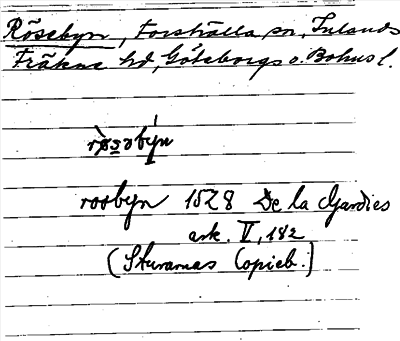 Rösebyn, Forshälla sn, Inlands
Fräkne hd, Göteborgs o. Bohus l.
rosbyn 1528 De la Gardies
ark. V, 182
(Sturarnas Copieb.)